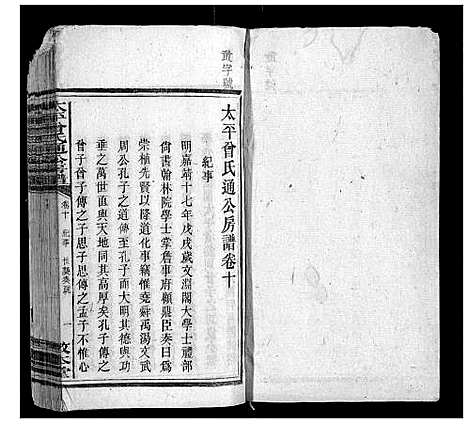 太平曾氏通公房譜卷十
紀事
明嘉靖十七年戊戌歲文淵閣大學士禮部
尙書翰林院學士掌詹事府顧鼎臣奏曰爲
崇植先賢以隆道化事竊惟堯舜禹湯文武
周公孔子之道傳至孔子而大明其德與功
垂之萬世直與天地同其高厚矣孔子傳之
曾子曾子傳之子思子思傳之孟子不惟心
太平曾氏通公房譜
卷十 紀事
一